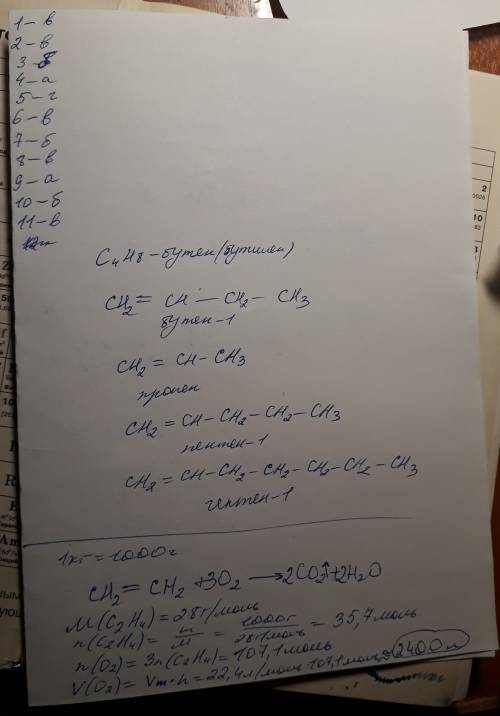 1-в
2-в
3-б
4-а
5-г
6-в
7-б
8-в
9-а
10-б
11-в
C₄H₈-бутен(бутилен)
CH₂= CH — CH₂- CH₃
бутен-1
CH₂ = CH- CH₃
пропен
CH₂ = CH- CH₂- CH₂- CH₃
пентен-1
CH₂ = CH-CH₂- CH₂- CH₂- CH₂ - CH₃
гептен-1
1кг=1000г
CH₂= CH₂ +3O₂ →2CO₂↑+2H₂O
M(C₂H₄) = 28г/моль
n(C₂H₄)= m/M = 1000г/28г/моль = 35,7моль
n(O₂)= 3n(C₂H₄)= 107,1моль
V(O₂)= Vm·n=22,4л/моль·107,1моль≈2400л